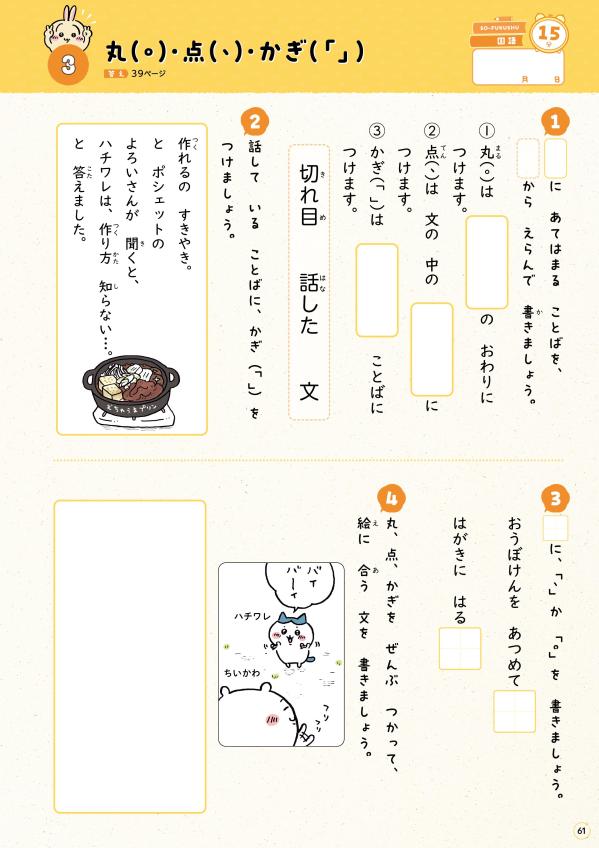 3
丸(。)・点(、)・かぎ(「」)
答え 39ページ
SO-FUKUSHU
国語
15分
月 日
1
に あてはまる ことばを、
から えらんで 書きましょう。
① 丸(。)は の おわりに
つけます。
② 点(、)は 文の 中の に
つけます。
③ かぎ(「」)は ことばに
つけます。
切れ目 話した 文
2
話して いる ことばに、かぎ(「」)を
つけましょう。
作れるの すきやき。
と ポシェットの
よろいさんが 聞くと、
ハチワレは、作り方 知らない…。
と 答えました。
むちゃうまプリン
3
に、「、」か 「。」を 書きましょう。
おうぼけんを あつめて
はがきに はる
4
丸、点、かぎを ぜんぶ つかって、
絵に 合う 文を 書きましょう。
バイ
バーイ
ハチワレ
ちいかわ
フリ
フリ
61